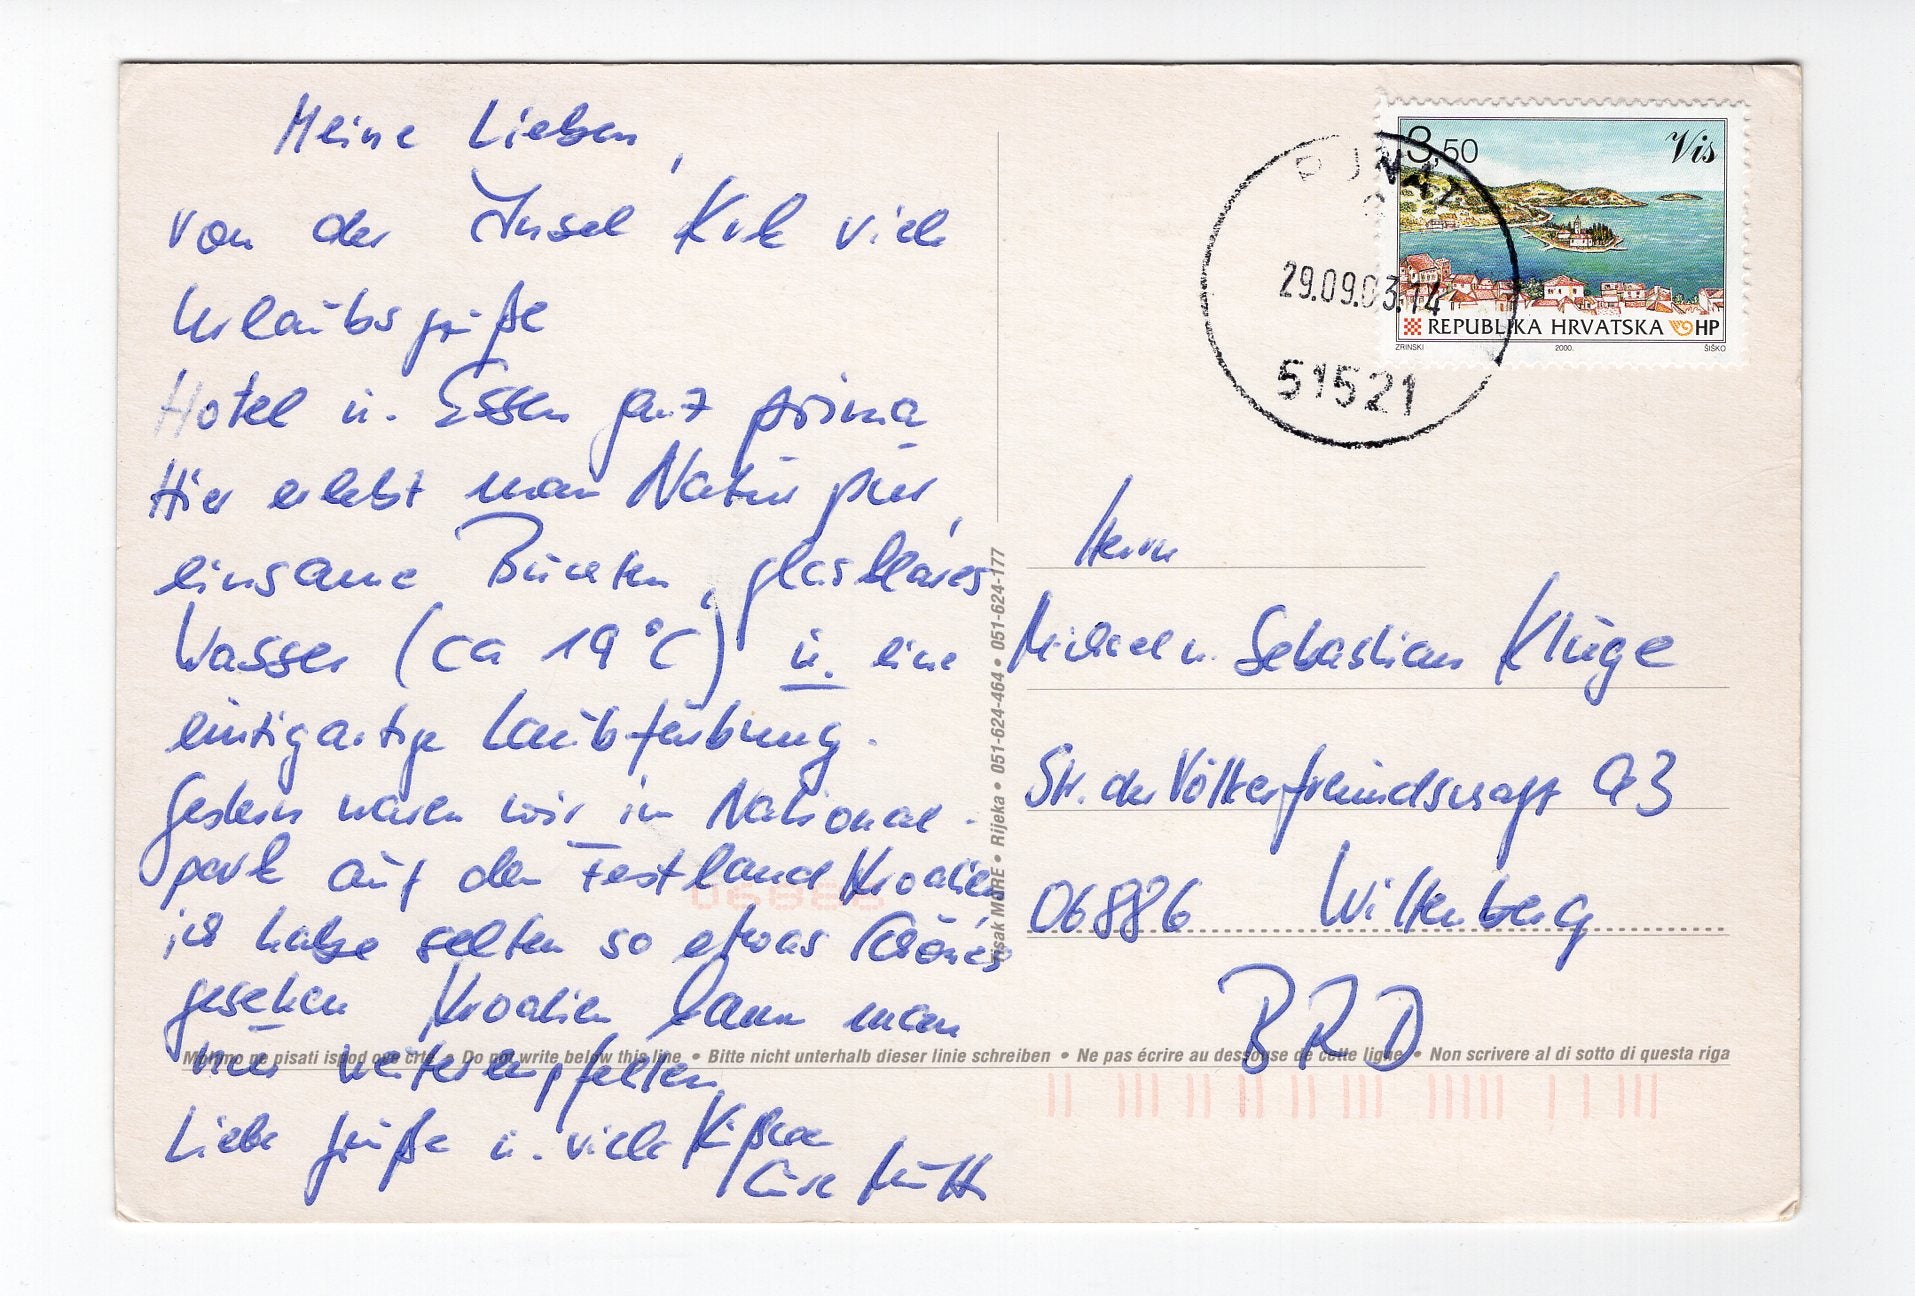 Meine Lieben,
von der Insel Krk viele
Urlaubsgrüße
Hotel u. Essen ganz prima
Hier erlebt man Natur pur,
einsame Buchten, glasklares
Wasser (ca 19°C) u. eine
einzigartige Laubfärbung.
Gestern waren wir im National-
park auf dem Festland Kroatien
ich habe selten so etwas Schönes
gesehen Kroatien kann man
nur weiterempfehlen
Liebe Grüße u. viele Küsse
Eure
3,50 Vis
REPUBLIKA HRVATSKA HP
ZRINSKI 2000. ŠIŠKO
PUNAT
29.09.03.14
51521
Herrn
Michael u. Sebastian Kluge
Str. der Völkerfreundschaft 93
06886 Wittenberg
BRD
Tisak MORE • Rijeka • 051-624-464 • 051-624-177
06886
Molimo ne pisati ispod ove crte • Do not write below this line • Bitte nicht unterhalb dieser linie schreiben • Ne pas écrire au dessouse de cette ligne • Non scrivere al di sotto di questa riga